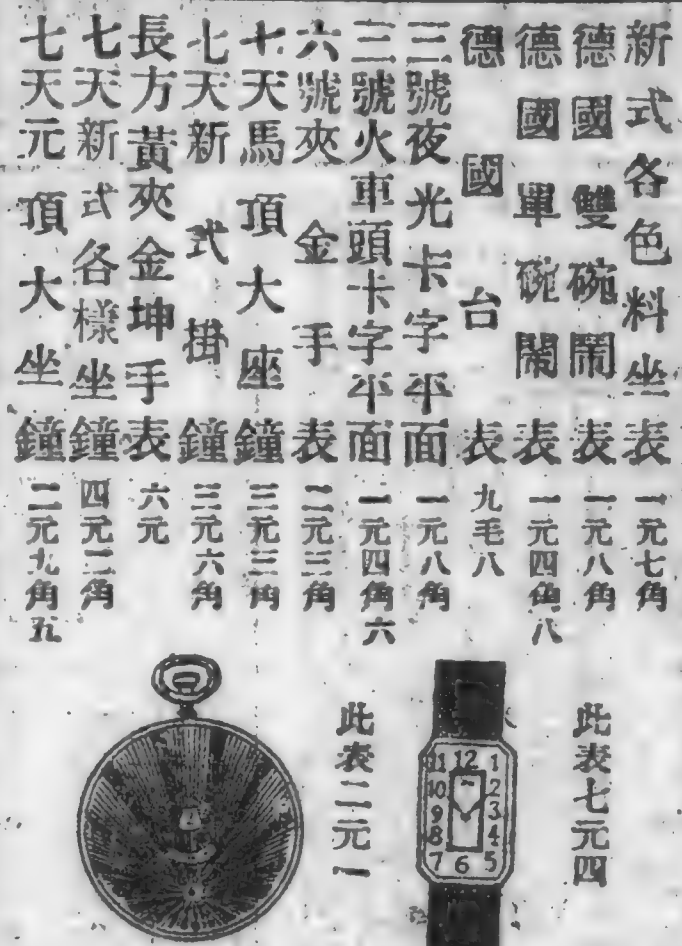 新式各色料坐表 一元七角
德國雙碗鬧表 一元八角
德國單碗鬧表 一元四角八
德國台表 九毛八
三號夜光卡字平面 一元八角
三號火車頭卡字平面 一元四角六
六號夾金手表 二元三角
七天馬頂大座鐘 三元三角
七天新式掛鐘 三元六角
長方黃夾金坤手表 六元
七天新式各樣坐鐘 四元二角
七天元頂大坐鐘 二元九角五
此表七元四
11 12 1
10 2
9 3
8 4
7 6 5
此表二元一